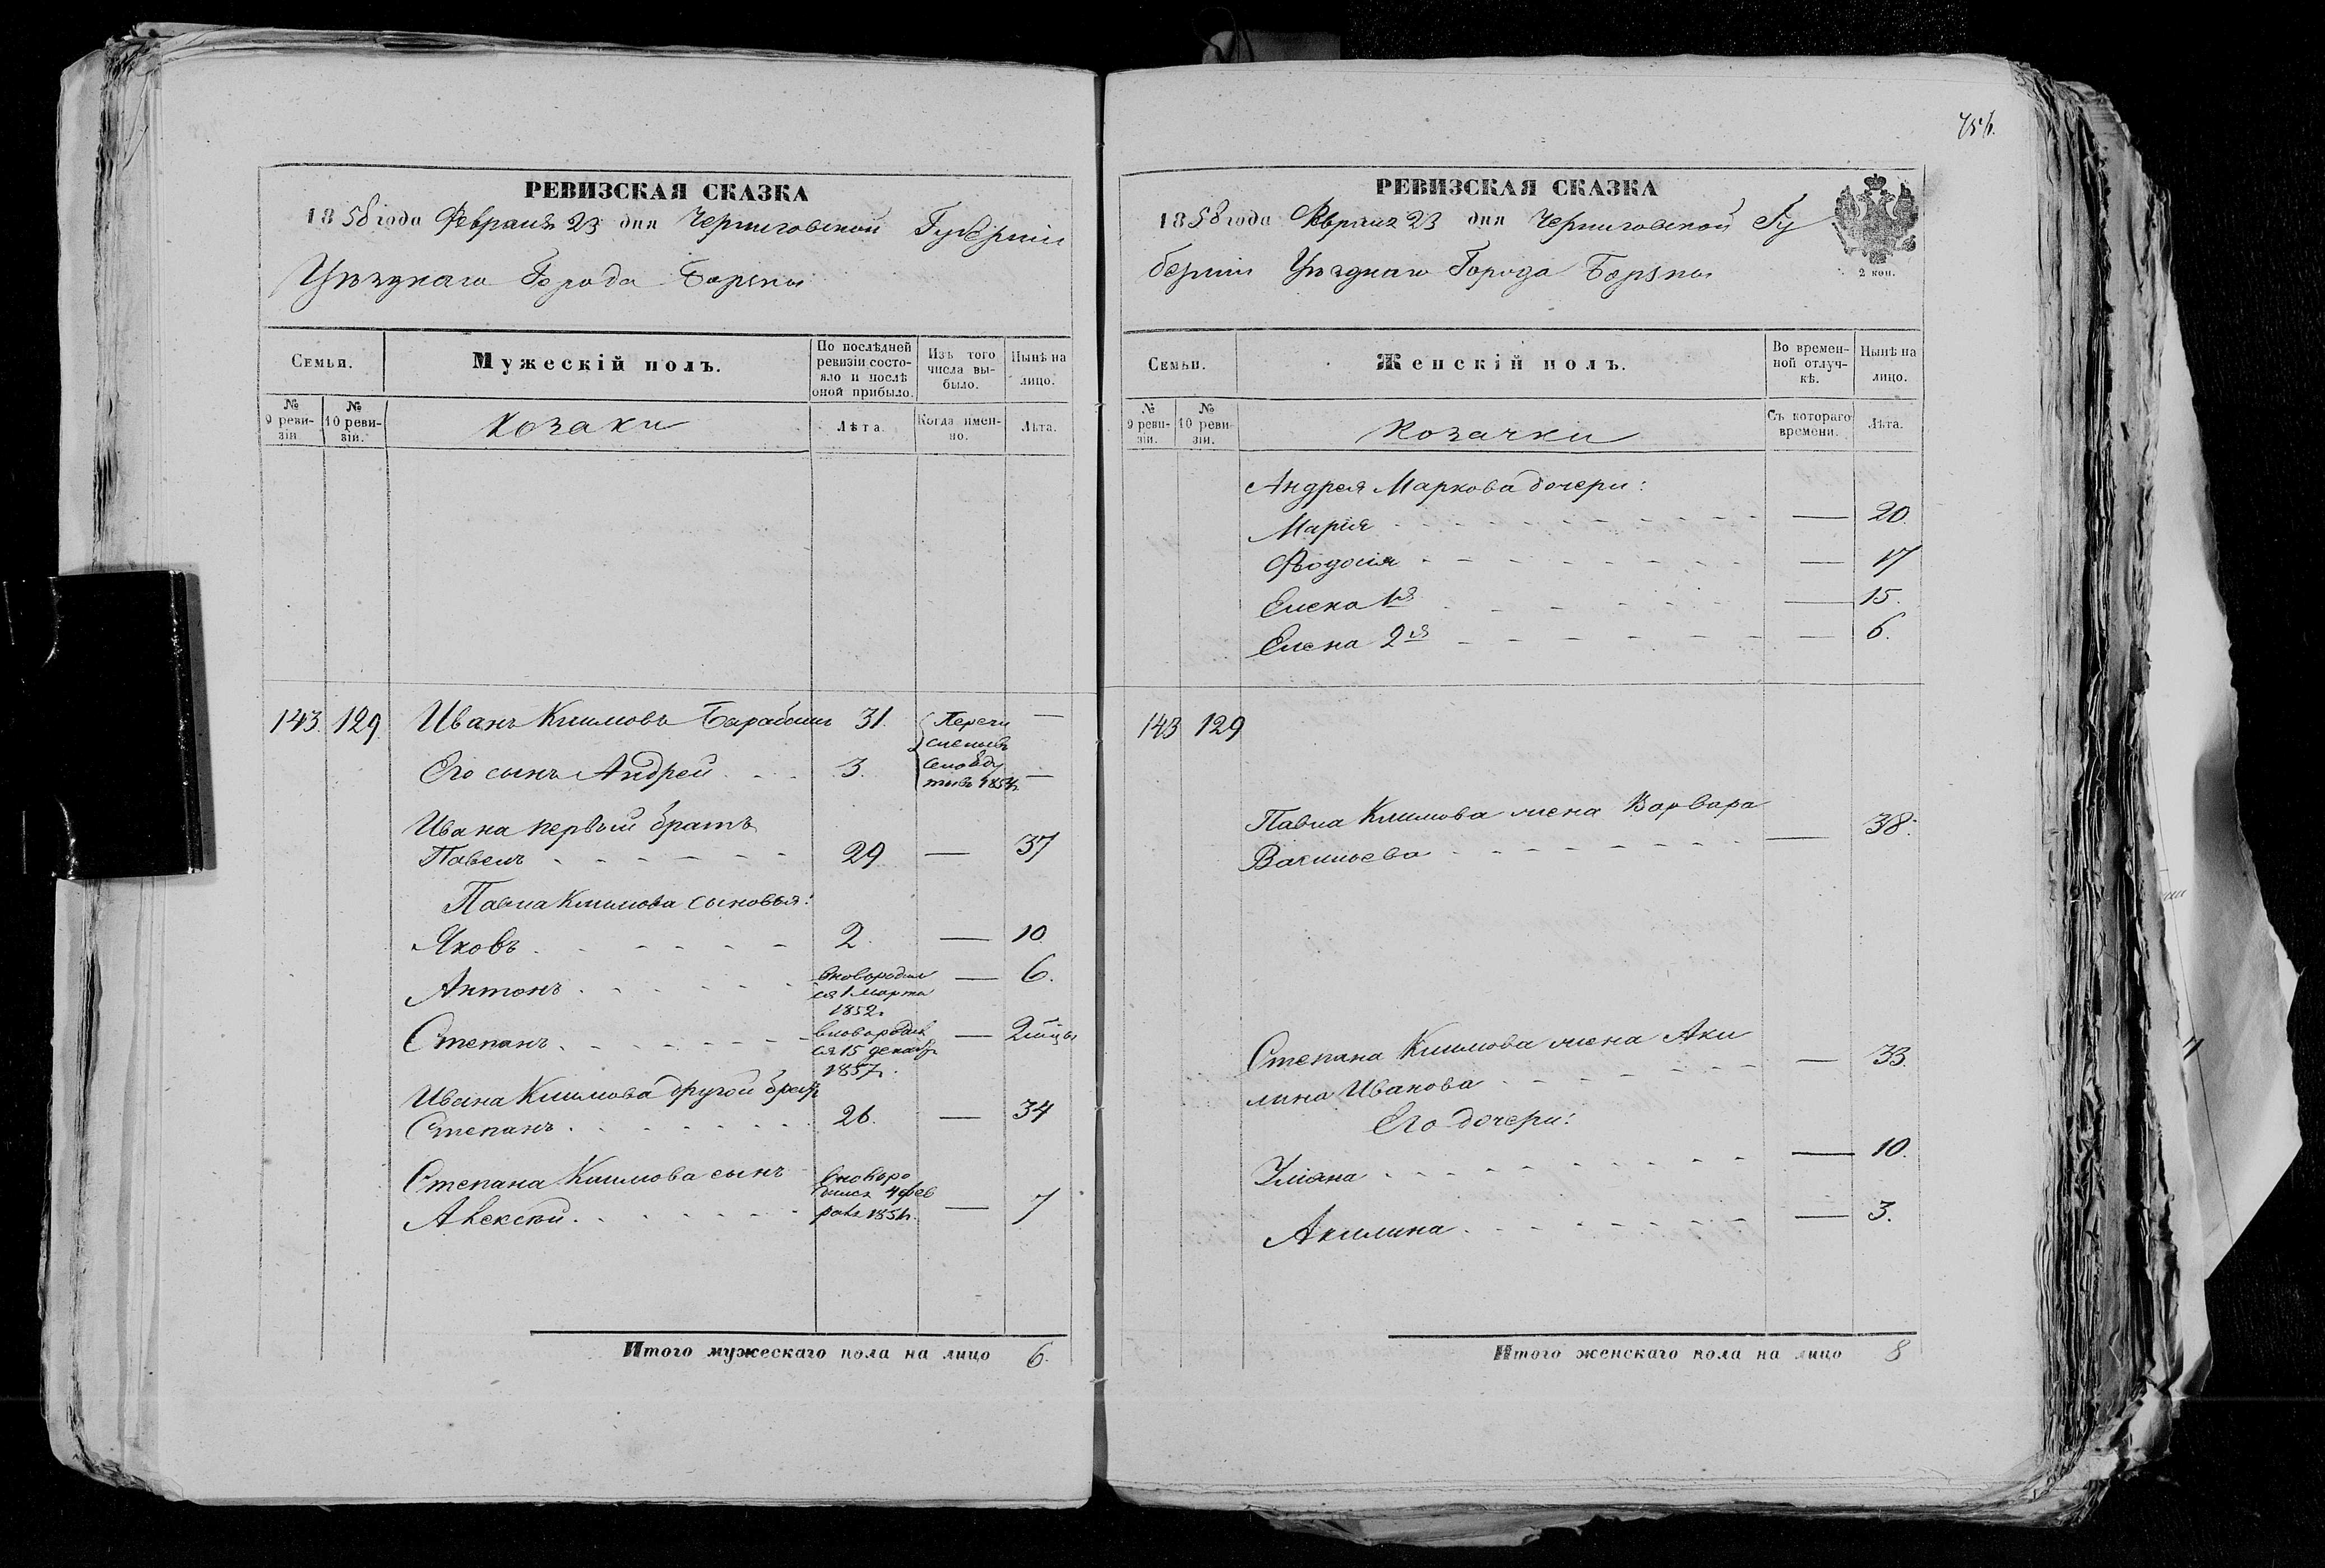 РЕВИЗСКАЯ СКАЗКА
1858 года Февраля 23 дня Черниговской Губерніи
Уѣзднаго Города Борзны
Семьи.
Мужескій полъ.
По послѣдней ревизіи состояло и послѣ оной прибыло.
Изъ того числа выбыло.
Нынѣ на лицо.
№ 9 ревизіи
№ 10 ревизіи.
Козаки
Лѣта.
Когда именно.
Лѣта.
143. 129 Иванъ Климовъ Барабашъ 31. Перечисленъ —
Его сынъ Андрей 3. —
Ивана первый братъ
Павелъ 29 — 37
Павла Климова сыновья:
Яковъ 2. — 10
Антонъ вновородился 1 марта 1852. — 6.
Степанъ вновородился 15 декабр 1857. — 2 мѣцы
Ивана Климова другой братъ
Степанъ 26. — 34
Степана Климова сынъ
Алексѣй вноворо дился 4 фев — 7
Итого мужескаго пола на лицо 6.
756.
РЕВИЗСКАЯ СКАЗКА
1858 года Февраля 23 дня Черниговской Гу
берніи Уѣзднаго Города Борзны
2 коп.
Семьи.
Женскій полъ.
Во временной отлучкѣ.
Нынѣ на лицо.
№ 9 ревизіи.
№ 10 ревизіи.
Козачки
Съ котораго времени.
Лѣта.
Андрея Маркова дочери:
Марія — 20.
Феодосія — 17
Елена 1я — 15.
Елена 2я — 6.
143 129
Павла Климова жена Варвара
Васильева — 38.
Степана Климова жена Аки
лина Иванова — 33.
Его дочери:
Уліяна — 10.
Акилина — 3.
Итого женскаго пола на лицо 8